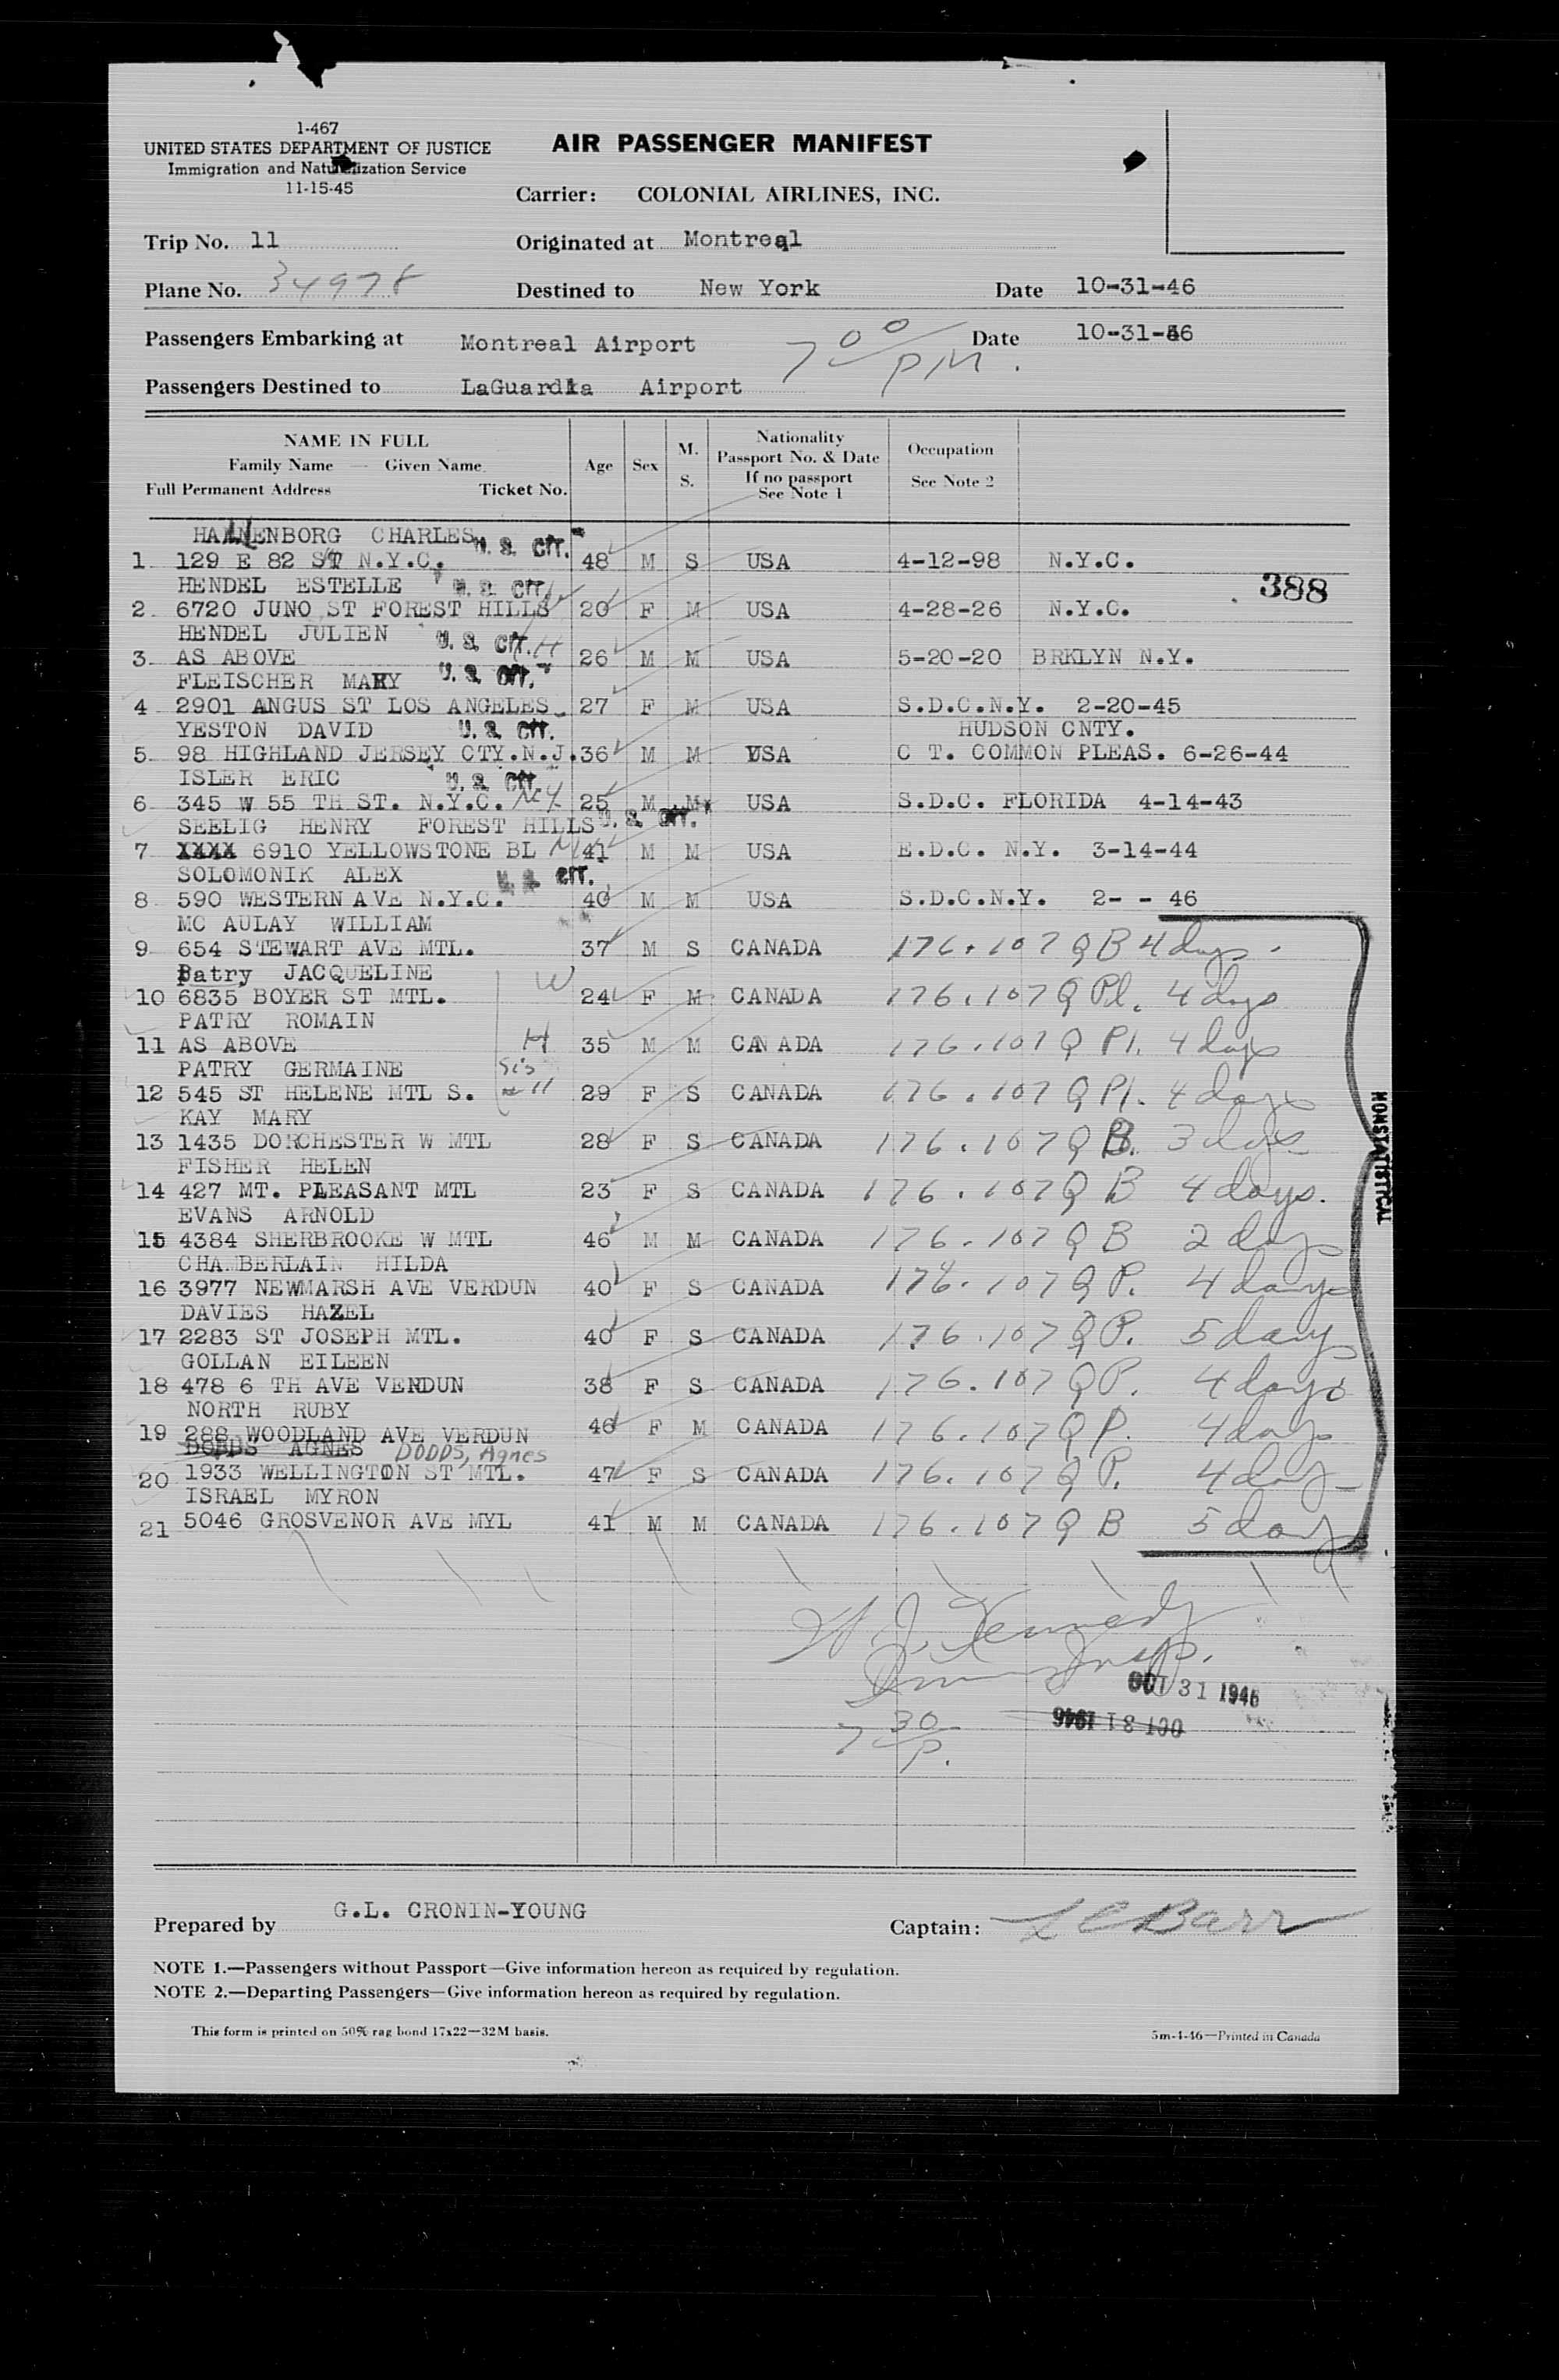 1-467
UNITED STATES DEPARTMENT OF JUSTICE
Immigration and Naturalization Service
11-15-45
AIR PASSENGER MANIFEST
Carrier: COLONIAL AIRLINES, INC.
Trip No. 11 Originated at Montreal
Plane No. 34978 Destined to New York Date 10-31-46
Passengers Embarking at Montreal Airport 7 00 PM. Date 10-31-46
Passengers Destined to LaGuardia Airport
NAME IN FULL
Family Name — Given Name
Full Permanent Address Ticket No.
Age Sex M. S.
Nationality
Passport No. & Date
If no passport
See Note 1
Occupation
See Note 2
HANNENBORG CHARLES U. S. CIT.
1 129 E 82 ST N.Y.C. 48 M S USA 4-12-98 N.Y.C.
388
HENDEL ESTELLE U. S. CIT.
2 6720 JUNO ST FOREST HILLS 20 F M USA 4-28-26 N.Y.C.
HENDEL JULIEN U. S. CIT. H
3 AS ABOVE 26 M M USA 5-20-20 BRKLYN N.Y.
FLEISCHER MARY U. S. CIT.
4 2901 ANGUS ST LOS ANGELES 27 F M USA S.D.C.N.Y. 2-20-45
YESTON DAVID U. S. CIT. HUDSON CNTY.
5 98 HIGHLAND JERSEY CTY.N.J. 36 M M USA C T. COMMON PLEAS. 6-26-44
ISLER ERIC U. S. CIT.
6 345 W 55 TH ST. N.Y.C. NY 25 M M USA S.D.C. FLORIDA 4-14-43
SEELIG HENRY FOREST HILLS U. S. CIT.
7 XXXX 6910 YELLOWSTONE BL NY 41 M M USA E.D.C. N.Y. 3-14-44
SOLOMONIK ALEX U. S. CIT.
8 590 WESTERN AVE N.Y.C. 40 M M USA S.D.C.N.Y. 2- - 46
MC AULAY WILLIAM
9 654 STEWART AVE MTL. 37 M S CANADA 176.107 Q B 4 days.
Patry JACQUELINE W
10 6835 BOYER ST MTL. 24 F M CANADA 176.107 Q Pl. 4 days
PATRY ROMAIN
11 AS ABOVE H 35 M M CAN ADA 176.107 Q Pl. 4 days
PATRY GERMAINE Sis
12 545 ST HELENE MTL S. 11 29 F S CANADA 176.107 Q Pl. 4 days
KAY MARY
13 1435 DORCHESTER W MTL 28 F S CANADA 176.107 Q B. 3 days
FISHER HELEN
14 427 MT. PLEASANT MTL 23 F S CANADA 176.107 Q B 4 days.
EVANS ARNOLD
15 4384 SHERBROOKE W MTL 46 M M CANADA 176.107 Q B 2 days
CHAMBERLAIN HILDA
16 3977 NEWMARSH AVE VERDUN 40 F S CANADA 176.107 Q P. 4 days
DAVIES HAZEL
17 2283 ST JOSEPH MTL. 40 F S CANADA 176.107 Q P. 5 days
GOLLAN EILEEN
18 478 6 TH AVE VERDUN 38 F S CANADA 176.107 Q P. 4 days
NORTH RUBY
19 288 WOODLAND AVE VERDUN 46 F M CANADA 176.107 Q P. 4 days
DOBBS AGNES DODDS, Agnes
20 1933 WELLINGTON ST MTL. 47 F S CANADA 176.107 Q P. 4 day
ISRAEL MYRON
21 5046 GROSVENOR AVE MYL 41 M M CANADA 176.107 Q B 5 day
NONSTATISTICAL
J. Kennedy
Imm Insp.
OCT 31 1946
7 30 P.
OCT 31 1946
Prepared by G.L. CRONIN-YOUNG Captain: L C Barr
NOTE 1.—Passengers without Passport—Give information hereon as required by regulation.
NOTE 2.—Departing Passengers—Give information hereon as required by regulation.
This form is printed on 50% rag bond 17x22—32M basis. 5m-4-46—Printed in Canada